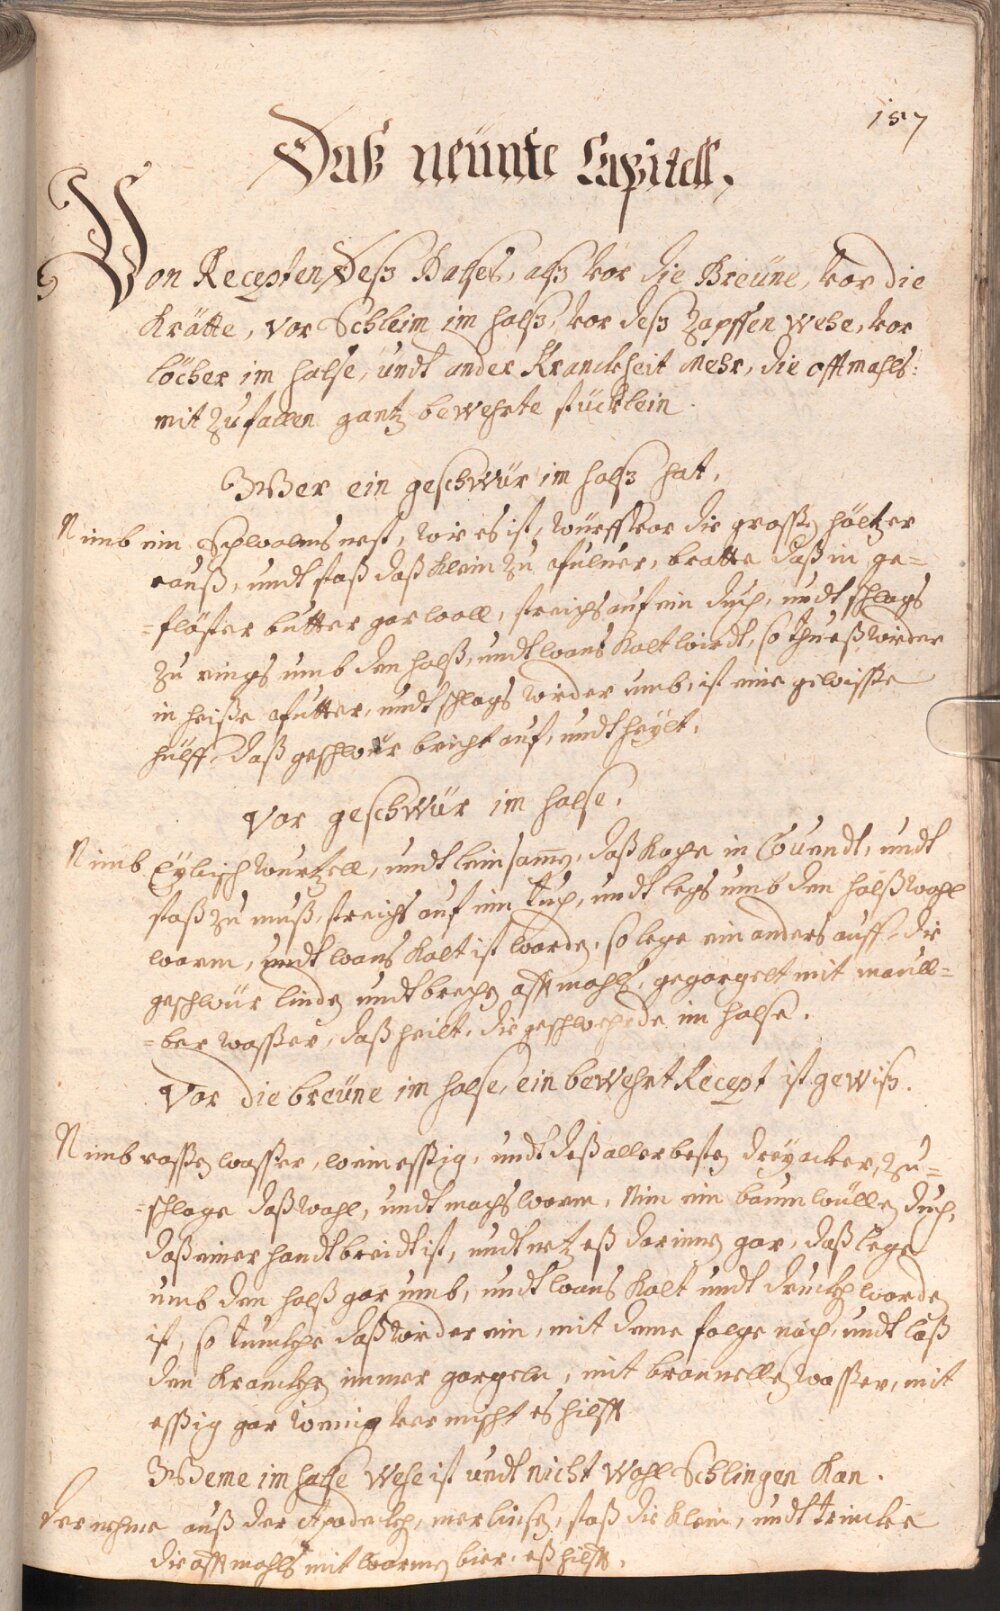 157
Daß neünte Capitell.
Von Recepten Deß Halses, alß vor die Breüne, vor die
Krätte, vor Schleim im halß, vor deß Zapffen wehe, vor
löcher im halse, undt ander Kranckheit mehr, die offtmahls:
mit Zufallen gantz bewehrte stücklein.
Wer ein geschwür im halß hat.
Nimb ein Schwalms nest, wie es ist, würff vor die grossen höltzer
rauß, undt stoß daß klein zu pulver, bratte daß in ge=
=flöster butter gar woll, streichs auf ein duch, undt schlags
zu rings umb den halß, undt wans kalt wirdt, so thu eß wieder
in heiße putter, undt schlags wieder umb, ist eine gewisse
hülff, daß geschwür bricht auf, undt heylt.
Vor geschwür im halse.
Nimb Eybischwurtzell, undt leinsamen, daß koche in Couendt, undt
stoß zu muß, streichs auf ein tuch, undt legs umb den halß wohl
warm, undt wans kalt ist worden, so lege ein anders auff, die
geschwür linden undt brechen offtmahls, gegorgelt mit maull=
=ber wasser, daß heilt, die geschwehrde im halse.
Vor die breüne im halse, ein bewehrt Recept ist gewiß.
Nimb rossen wasser, weinessig, undt deß allerbesten dreyacker, zu=
=schlage daß wohl, undt machs warm, Nim ein baumwüllen duch,
daß einer handt breidt ist, undt netz eß darinnen gar, daß lege
umb den halß gar umb, undt wans kalt undt drucken worden
ist, so tuncke daß wieder ein, mit deme folge nach, undt laß
den krancken immer gorgeln, mit braunellen wasser, mit
essig gar wenig vermischt es hilfft
Weme im halse wehe ist undt nicht wohl Schlingen kan.
der nehme auß der Apodecken, merlinsen, stoß die klein, undt trincke
die offtmahls mit warmen bier, eß hilfft.